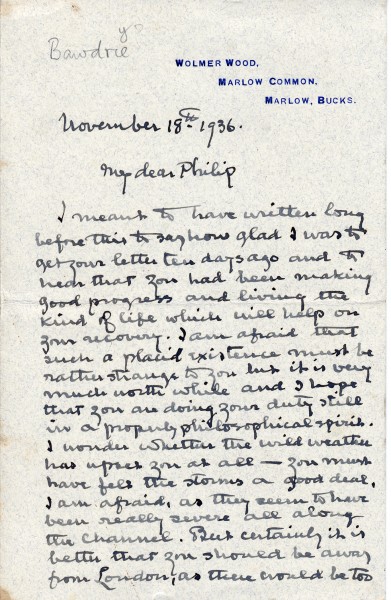 Bawdrie
y
WOLMER WOOD,
MARLOW COMMON,
MARLOW, BUCKS.
November 18th 1936.
My dear Philip
I meant to have written long
before this to say how glad I was to
get your letter ten days ago and to
hear that you had been making
good progress and living the
kind of life which will help on
your recovery. I am afraid that
such a placid existence must be
rather strange to you but it is very
much worth while and I hope
that you are doing your duty still
in a properly philosophical spirit.
I wonder whether the wild weather
has upset you at all — you must
have felt the storms a good deal,
I am afraid, as they seem to have
been really severe all along
the Channel. But certainly it is
better that you should be away
from London, as there would be too